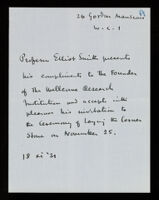 24 Gordon Mansions
W.C.1
Professor Elliot Smith presents
his compliments to the Founder
of the Wellcome Research
Institution and accepts with
pleasure his invitation to
the Ceremony of laying the Corner
Stone on November 25.
18 xi '31